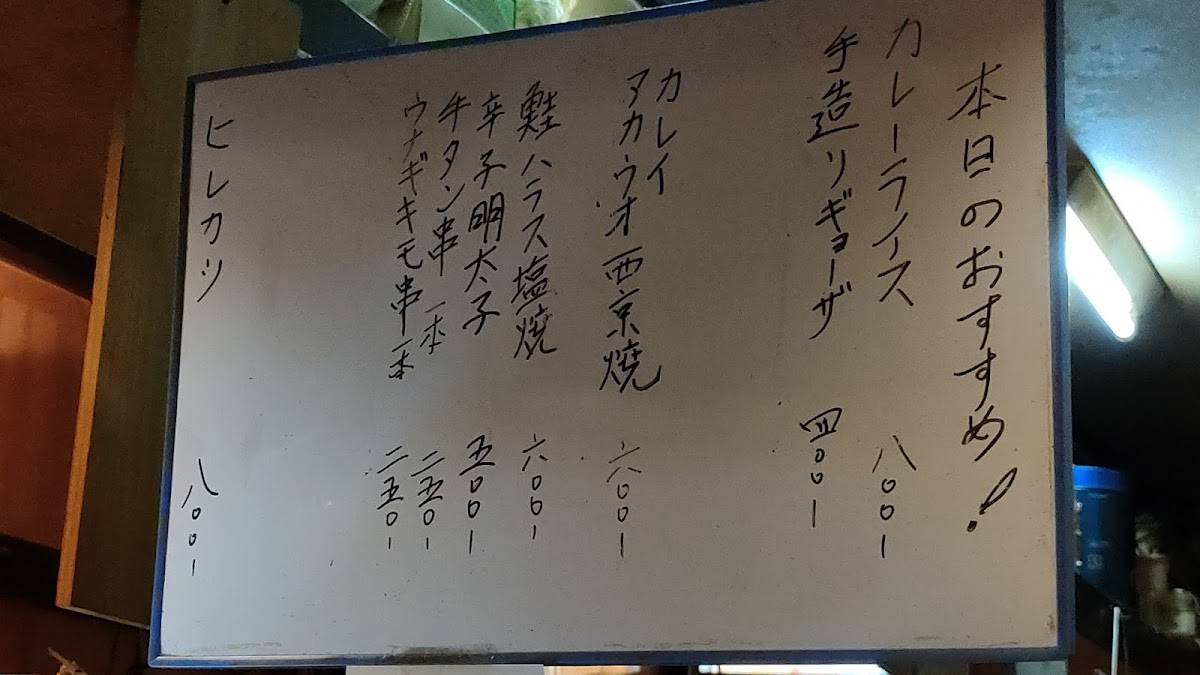 本日のおすすめ!
カレーライス 八〇〇-
手造リギョーザ 四〇〇-
カレイ
アカウオ西京焼 六〇〇-
鮭ハラス塩焼 六〇〇-
辛子明太子 五〇〇-
牛タン串 一本 二五〇-
ウナギキモ串 一本 二五〇-
ヒレカツ 八〇〇-